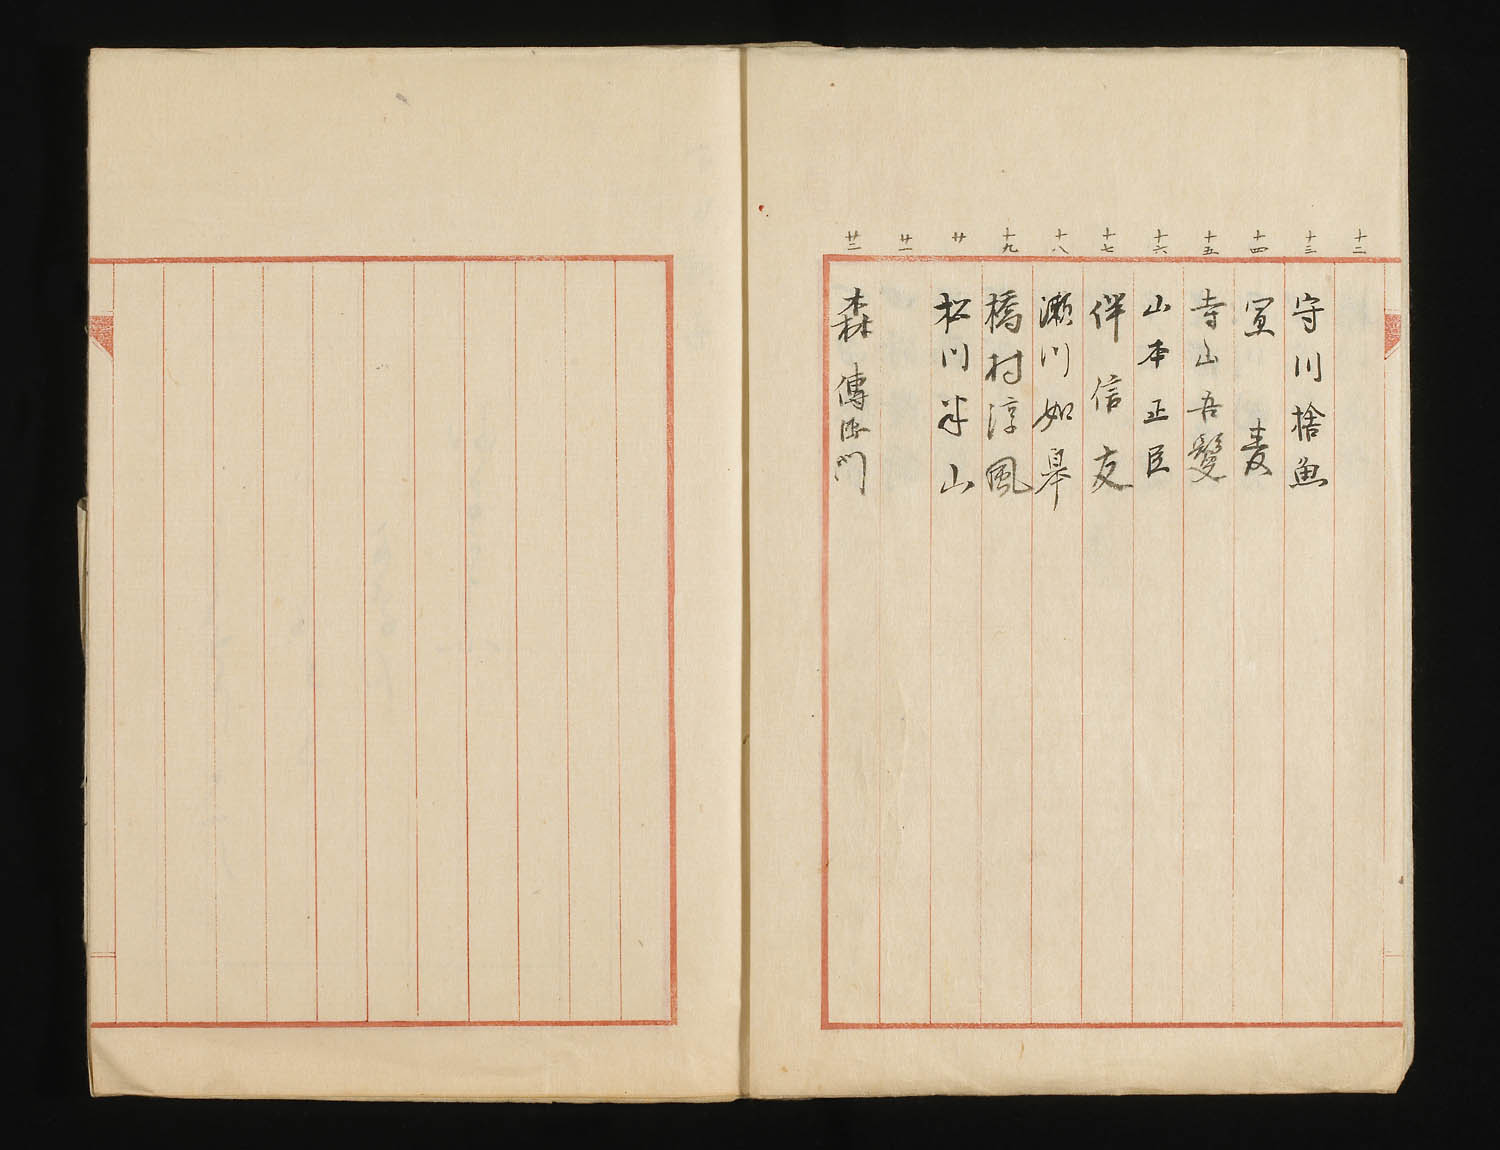 十二
十三
守川捨魚
十四
宣 麦
十五
寺山吾鬘
十六
山本正臣
十七
伴信友
十八
瀬川如皐
十九
橋村淳風
廿
松川半山
廿一
廿二
森傳右衛門